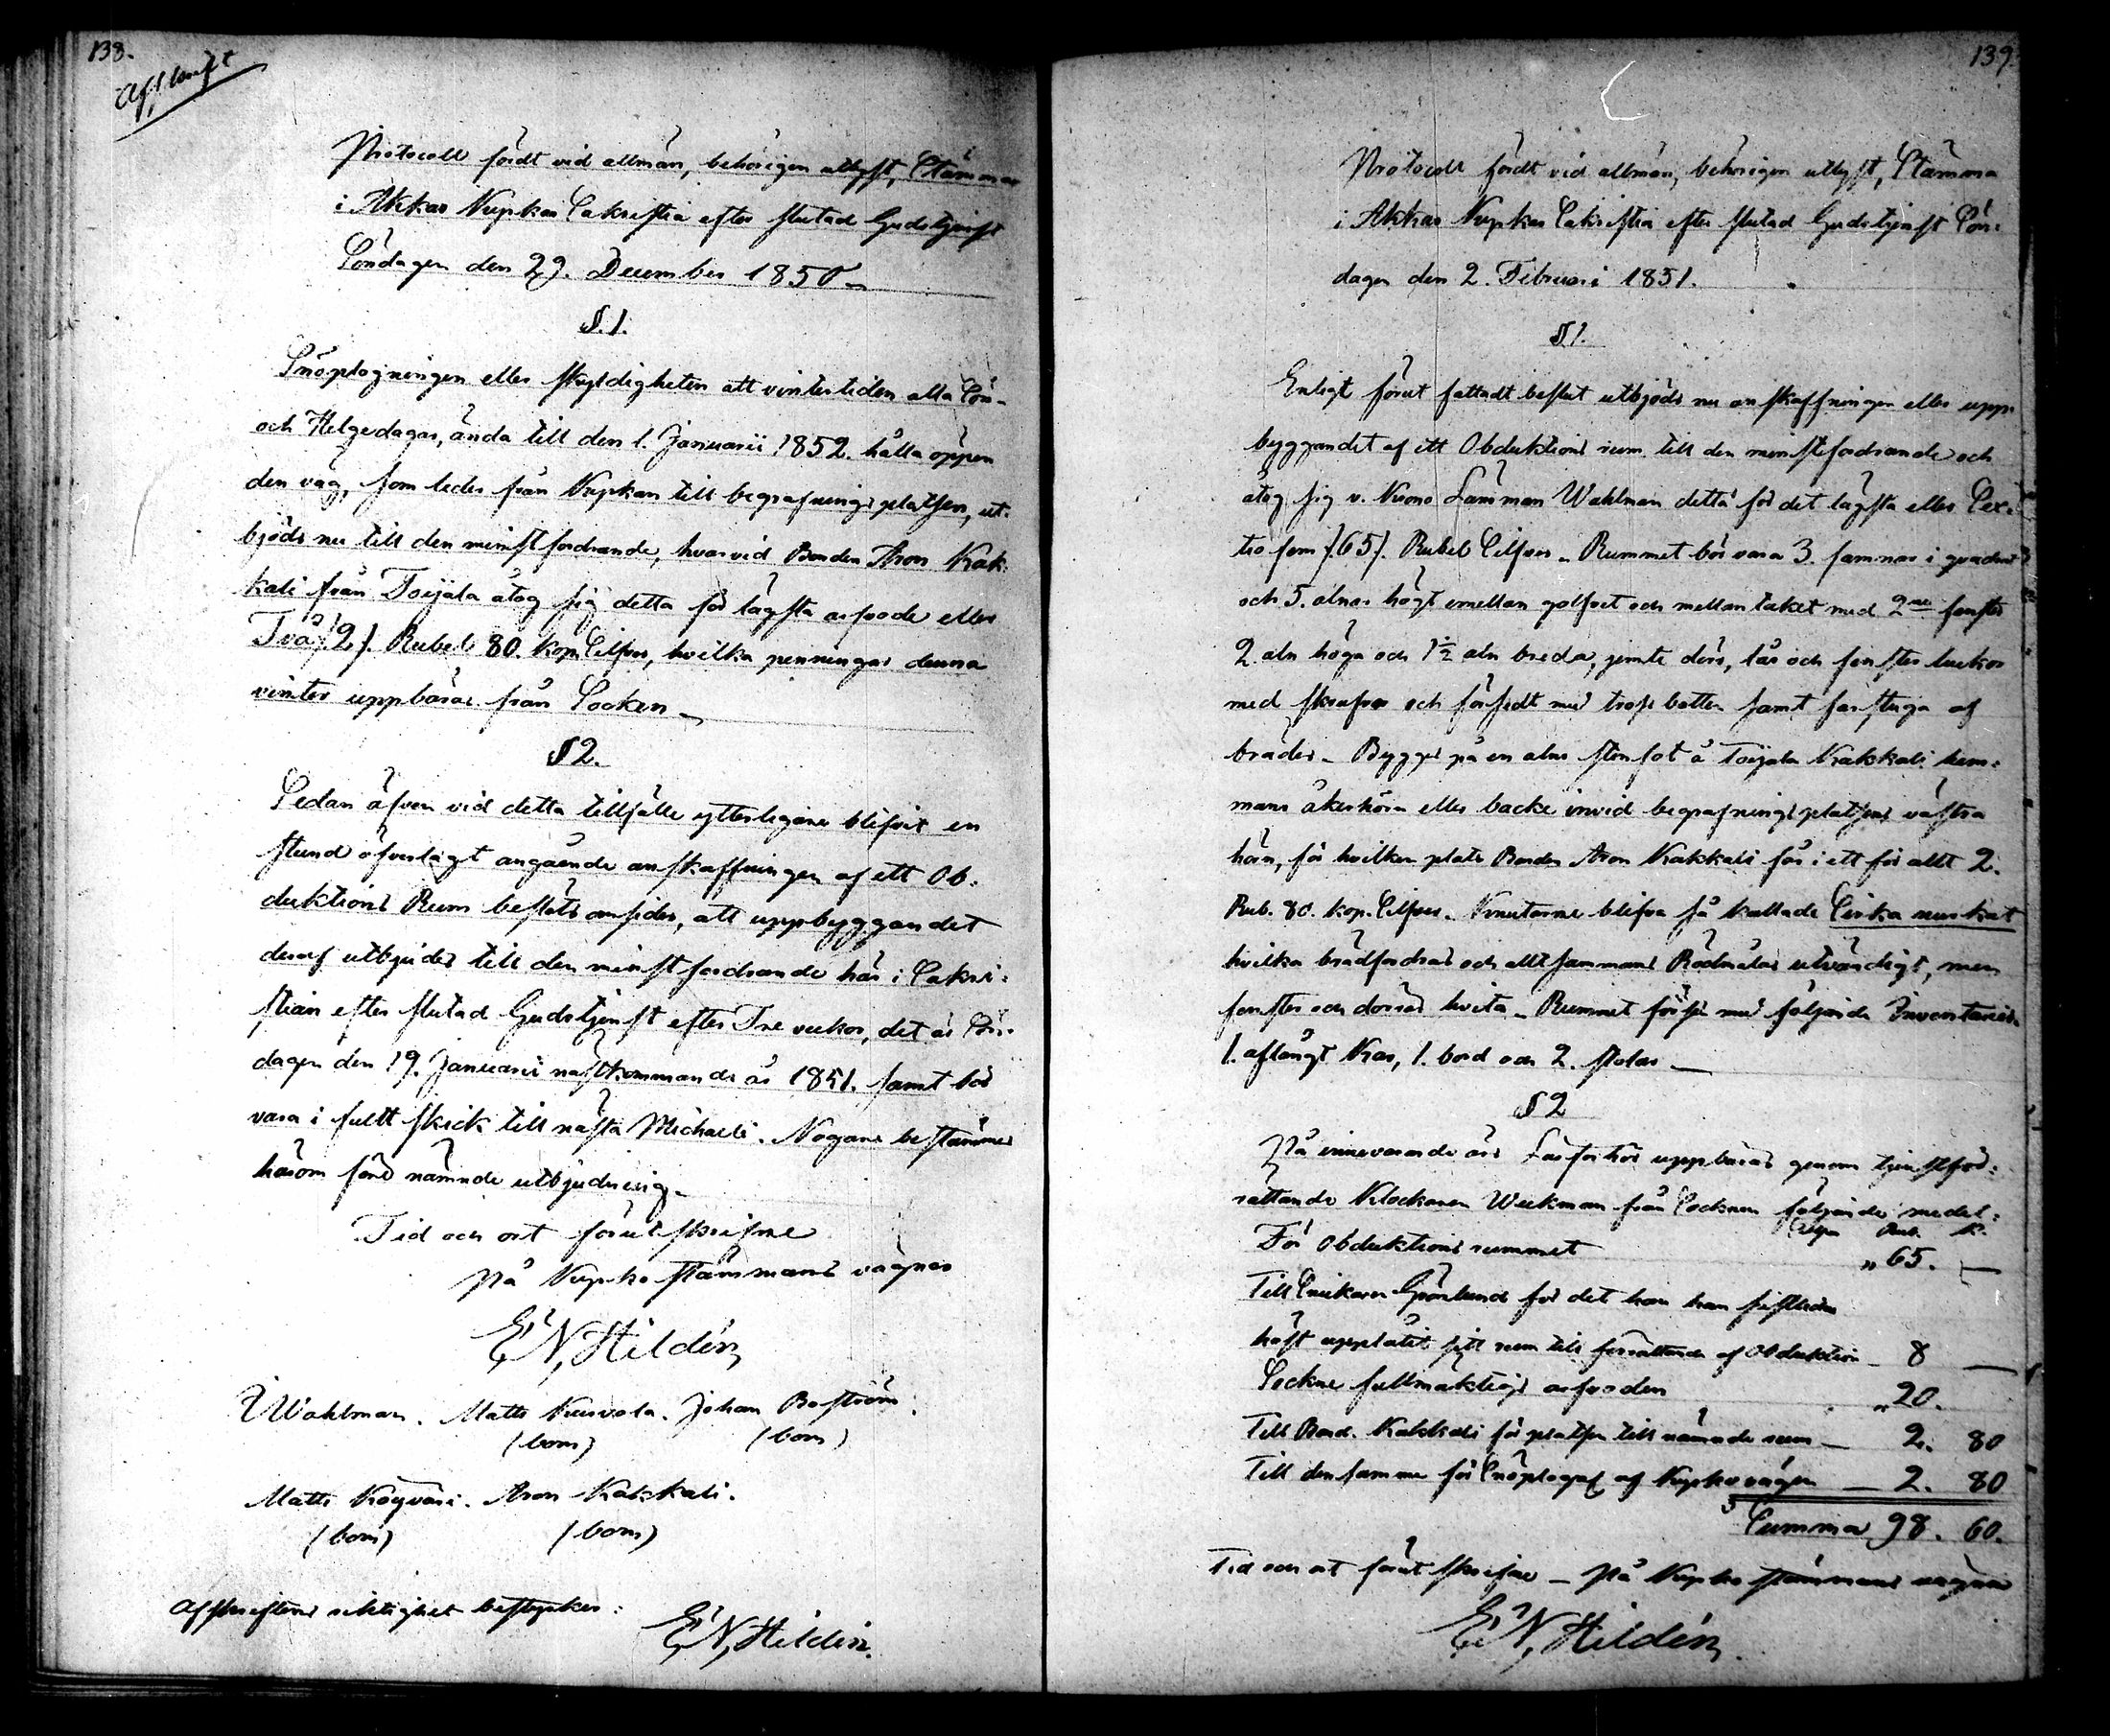 138.
Afskrift
Protocoll fördt vid allmän, behörigen utlyst, Stämma
i Akkas Kyrkas Sakristia efter slutad Gudstjenst
Söndagen den 29. December 1850.
§. 1.
Snöplogningen eller skyldigheten att vintertiden alla Sön-
och Helgedagar, ända till den 1. Januarii 1852. hålla öppen
den väg, som leder från Kyrkan till begrafningsplatsen, ut-
bjöds nu till den minstfordrande, hvarvid Bonden Aron Kak-
kali från Toijala åtog sig detta för lägsta arfvode eller
Två /.2/. Rubel 80. kop. Silfver, hvilka penningar denna
vinter uppbäras från Socken.
§ 2.
Sedan äfven vid detta tillfälle ytterligare blifvit en
stund öfverlagt angående anskaffningen af ett Ob-
duktions Rum beslöts omsider, att uppbyggandet
deraf utbjudes till den minstfordrande här i Sakri-
stian efter slutad Gudstjenst efter Tre veckor, det är Sön-
dagen den 19. Januarii nästkommande år 1851. samt bör
vara i fullt skick till nästa Michaeli. Nogare bestämmes
härom före nämnde utbjudning.
Tid och ort förutskrifne
På Kyrko stämmans vägnar
E N, Hildén
Wahlman. Matts Kurvola. Johan Boström.
(bom) (bom)
Matts Köyväri. Aron Kakkali.
(bom) (bom)
Afskriftens riktighet bestyrker:
E N, Hildén.
139.
Protocoll fördt vid allmän, behörigen utlyst, Stämma
i Akkas Kyrkas Sakristia efter slutad Gudstjenst Sön-
dagen den 2. Februari 1851.
§ 1.
Enligt förut fattadt beslut utbjöds nu anskaffningen eller upp-
byggandet af ett Obduktions rum till den minstfordrande och
åtog sig v. Krono Länsman Wahlman detta för det lägsta eller Sex-
tio fem /.65/. Rubel Silfver. Rummet bör vara 3. famnar i quadrat
och 5. alnar högt emellan golfvet och mellantaket med 2ne fenster
2 aln höga och 1 1/2 aln breda, jemte dörr, lås och fensterluckor
med skrufvar och försedt med tross botten samt farstuga af
bräder. Bygges på en alns stenfot å Toijala Kakkali hem-
mans åkerhörn eller backe invid begrafningsplatsens västra
hörn, för hvilken plats Bonden Aron Kakkali får i ett för allt 2.
Rub. 80. kop. Silfver. Knutarne blifva så kallade Sinka nurkat
hvilka brädfodras och allt sammans Rödmålas utvändigt, men
fenster och dörrar hvita. Rummet förses med följande Inventarier.
1. aflångt Kar, 1. bord och 2. stolar.
§ 2
På innevarande års Läsförhör uppbäras genom tjenstför-
rättande Klockaren Weckman från Socknen följande medel:
Silfver Rub. K.
För Obduktions rummet „ 65. —
Till Snickaren Grönlund för det han han sistledne
höst upplåtit sitt rum till förrättande af Obduktion — 8 —
Sockne fullmäktigs arfvoden „ 20.
Till Bond. Kakkali för platsen till nämnde rum — 2. 80
Till densamme för Snöplogng af Kyrkovägen — 2. 80
Summa 98. 60.
Tid och ort förutskrifne — På Kyrko stämmans vägnar
E N, Hildén